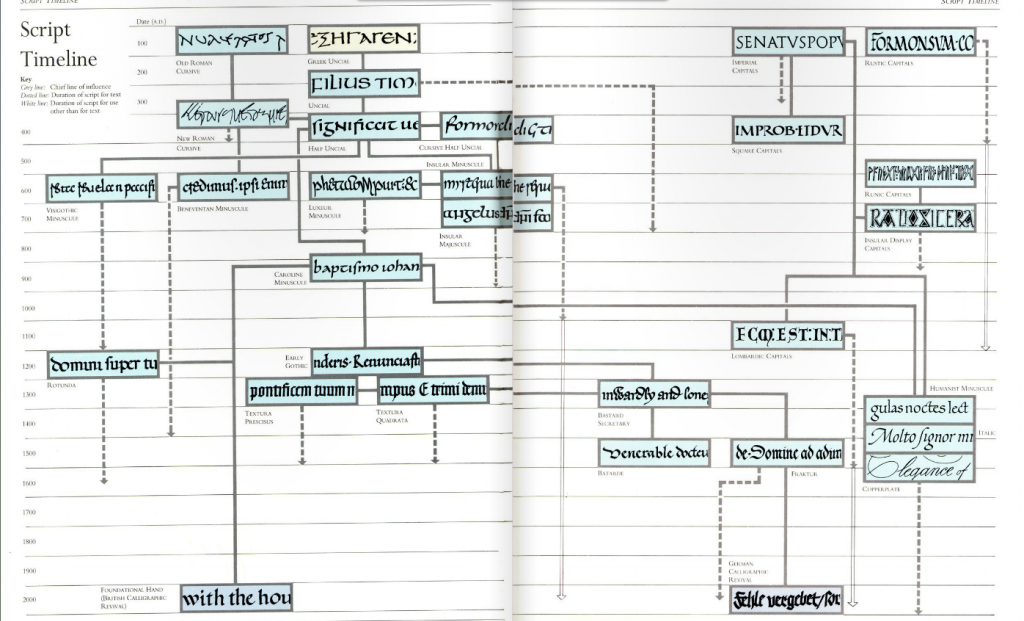 SCRIPT TIMELINE
SCRIPT TIMELINE
Script
Timeline
Key
Grey line: Chief line of influence
Dotted line: Duration of script for text
White line: Duration of script for use
other than for text
Date (A.D.)
100
200
300
400
500
600
700
800
900
1000
1100
1200
1300
1400
1500
1600
1700
1800
1900
2000
OLD ROMAN
CURSIVE
ΣΗΓΑΓΕΝ:
GREEK UNCIAL
FILIUS TIM
UNCIAL
NEW ROMAN
CURSIVE
significat ue
HALF UNCIAL
CURSIVE HALF UNCIAL
INSULAR MINUSCULE
VISIGOTHIC
MINUSCULE
BENEVENTAN MINUSCULE
LUXEUIL
MINUSCULE
angelus
INSULAR
MAJUSCULE
baptismo iohan
CAROLINE
MINUSCULE
domini super tu
ROTUNDA
EARLY
GOTHIC
pontificem tuum n
TEXTURA
PRESCISUS
mpus E trini
TEXTURA
QUADRATA
FOUNDATIONAL HAND
(BRITISH CALLIGRAPHIC
REVIVAL)
with the hou
SENATVSPOPV
IMPERIAL
CAPITALS
FORMONSVM·CO
RUSTIC CAPITALS
IMPROB·LIDVR
SQUARE CAPITALS
RUNIC CAPITALS
INSULAR DISPLAY
CAPITALS
LOMBARDIC CAPITALS
inwardly and lone
BASTARD
SECRETARY
venerable docteu
BATARDE
de·Domine ad adiu
FRAKTUR
HUMANIST MINUSCULE
gulas noctes lect
Molto signor mi
ITALIC
Elegance of
COPPERPLATE
GERMAN
CALLIGRAPHIC
REVIVAL
Fehle vergebet/